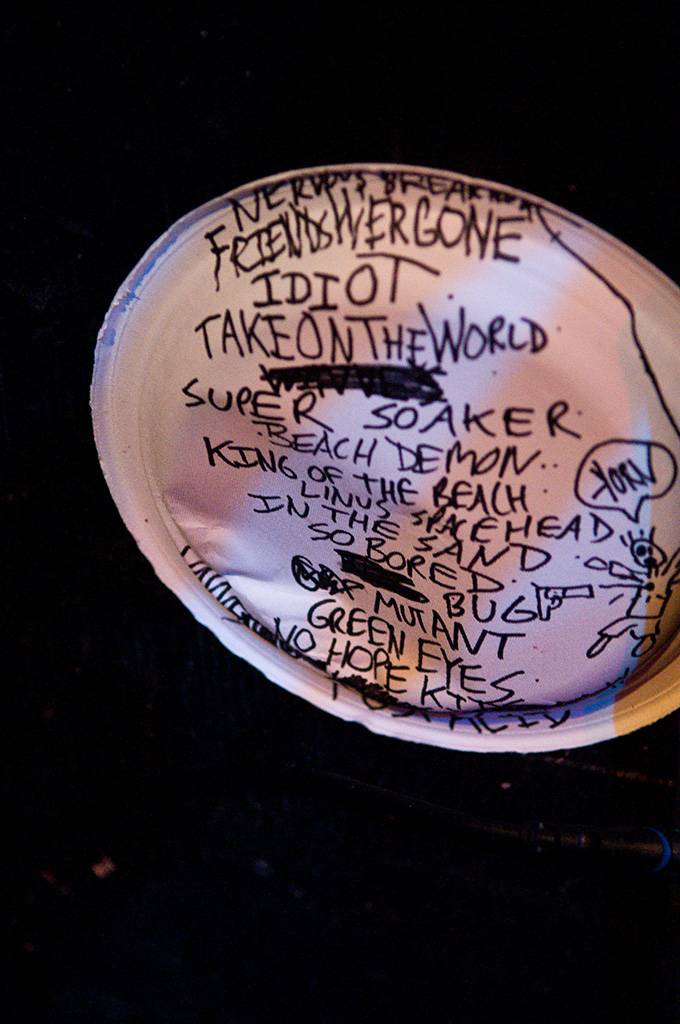 NERVOUS BREAK
FRIENDS WER GONE
IDIOT
TAKE ON THE WORLD
SUPER SOAKER
BEACH DEMON..
KING OF THE BEACH
LINUS SPACEHEAD
IN THE SAND
SO BORED
BUG
MUTANT
GREEN EYES
NO HOPE KIDS
POST ACID
KORN